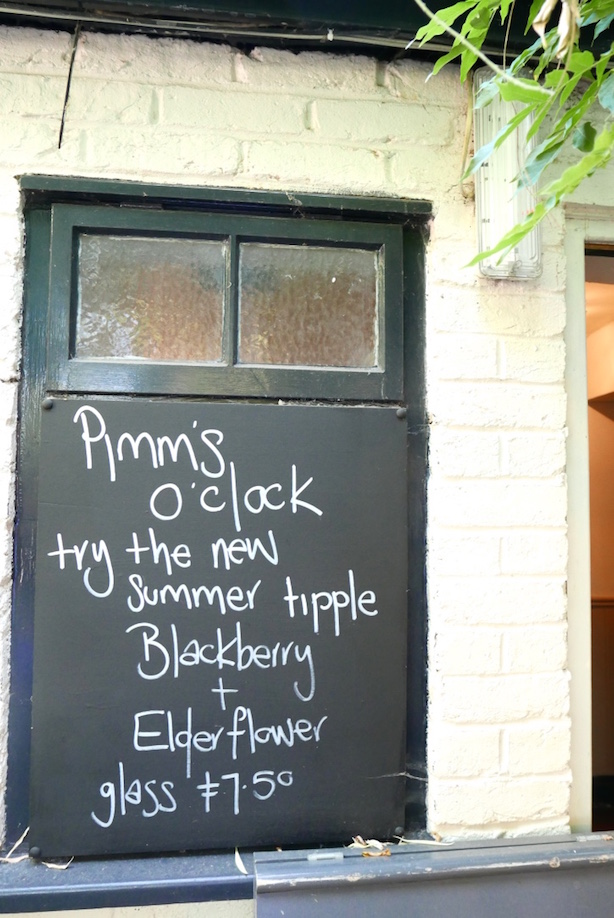 Pimm's
o'clock
try the new
summer tipple
Blackberry
+
Elderflower
glass £7.50